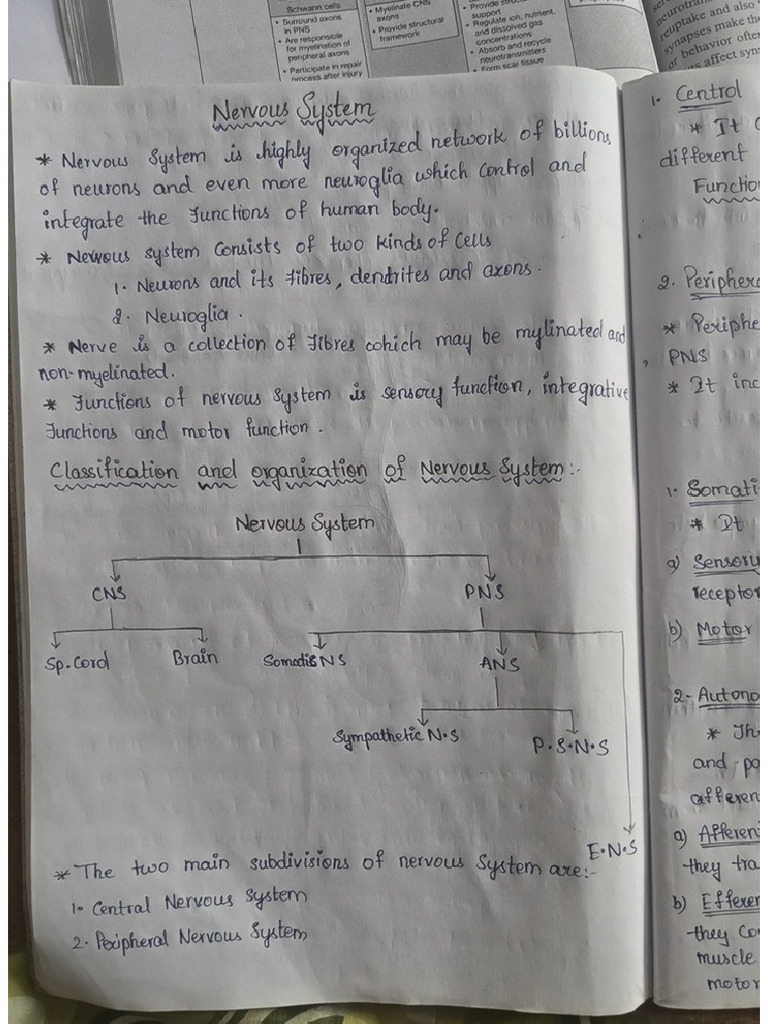 Schwann cells
• Surround axons
in PNS
• Are responsible
for myelination of
peripheral axons
• Participate in repair
process after injury
• Myelinate CNS
axons
• Provide structural
framework
• Provide
support
• Regulate ion, nutrient,
and dissolved gas
concentrations
• Absorb and recycle
neurotransmitters
• Form scar tissue
reuptake and also
synapses make the
or behavior often
affect syn
Nervous System
* Nervous System is highly organized network of billions
of neurons and even more neuroglia which control and
integrate the functions of human body.
* Nervous system consists of two kinds of cells
1. Neurons and its fibres, dendrites and axons.
2. Neuroglia.
* Nerve is a collection of fibres which may be mylinated and
non-myelinated.
* Functions of nervous system is sensory function, integrative
functions and motor function.
Classification and organization of Nervous System:-
Nervous System
CNS PNS
Sp.Cord Brain Somatic NS ANS
Sympathetic N.S P.S.N.S
E.N.S
* The two main subdivisions of nervous System are:-
1. Central Nervous System
2. Peripheral Nervous System
1. Central
* It
different
Functio
2. Periphera
* Periphe
PNS
* It inc
1. Somati
* It
a) Sensory
receptor
b) Motor
2. Autono
* Th
and pa
afferen
a) Afferen
they tra
b) Efferen
they co
muscle
motor